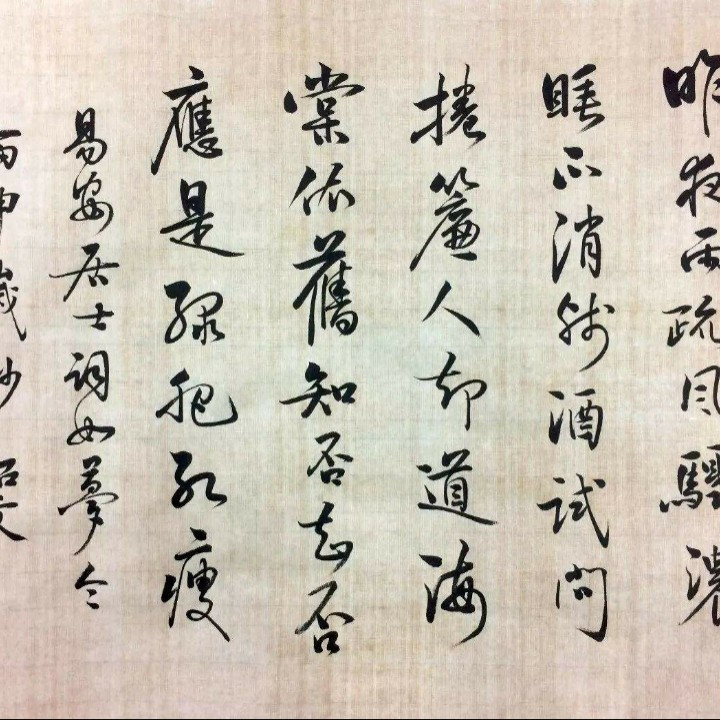 昨夜雨疏風驟濃
睡不消殘酒試問
捲簾人却道海
棠依舊知否知否
應是綠肥紅瘦
易安居士詞如夢令
丙申歲杪